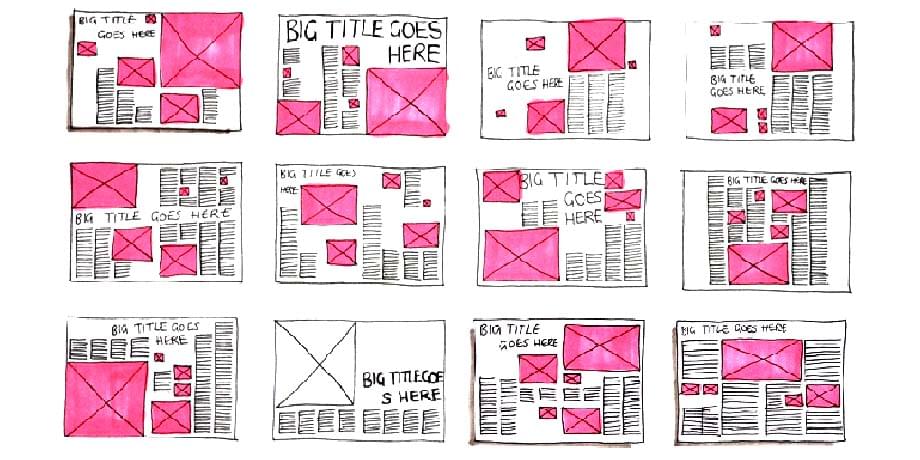 BIG TITLE
GOES HERE
BIG TITLE GOES
HERE
BIG TITLE
GOES HERE
BIG TITLE
GOES HERE
BIG TITLE GOES HERE
BIG TITLE GOES
HERE
BIG TITLE
GOES
HERE
BIG TITLE GOES HERE
BIG TITLE GOES
HERE
BIG TITLEGOE
S HERE
BIG TITLE
GOES HERE
BIG TITLE GOES HERE